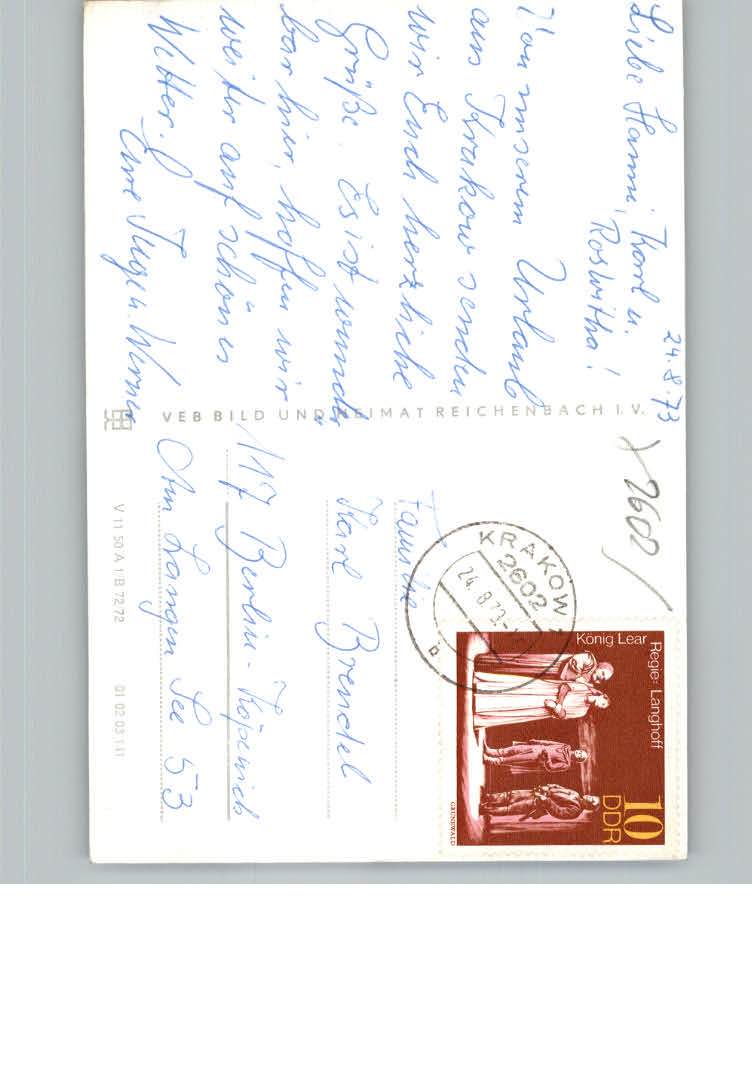 24.8.73
Liebe Hanni, Karl u.
Roswitha!
Von unserem Urlaub
aus Krakow senden
wir Euch herzliche
Grüße. Es ist wunder
bar hier, hoffen wir
weiter auf schönes
Wetter.
Eure Inge u. Werner
VEB BILD UND HEIMAT REICHENBACH I. V.
2602
KRAKOW
2602
24.8.73
b
König Lear
Regie: Langhoff
10
DDR
GRUNEWALD
Familie
Karl Brendel
117 Berlin-Köpenick
Am Langen See 53
V 11 50 A 1/B 72 72
01 02 03 141